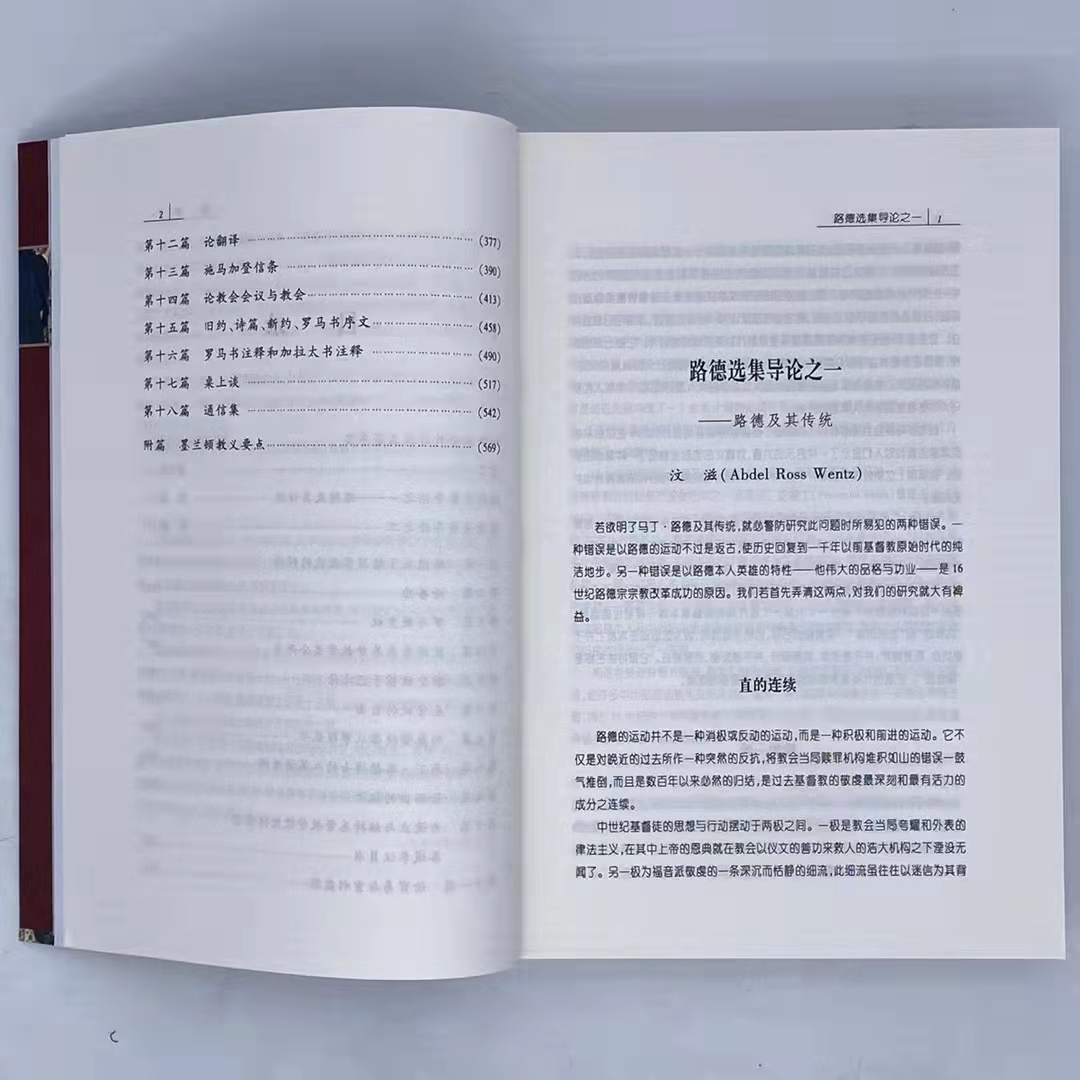 2
第十二篇 论翻译 ……………………………………………… (377)
第十三篇 施马加登信条 ……………………………………… (390)
第十四篇 论教会会议与教会 ………………………………… (413)
第十五篇 旧约、诗篇、新约、罗马书序文 ………………… (458)
第十六篇 罗马书注释和加拉太书注释 ……………………… (490)
第十七篇 桌上谈 ……………………………………………… (517)
第十八篇 通信集 ……………………………………………… (542)
附篇 墨兰顿教义要点 ………………………………………… (569)
路德选集导论之一 1
路德选集导论之一
——路德及其传统
汶 滋(Abdel Ross Wentz)
若欲明了马丁·路德及其传统,就必警防研究此问题时所易犯的两种错误。一
种错误是以路德的运动不过是返古,使历史回复到一千年以前基督教原始时代的纯
洁地步。另一种错误是以路德本人英雄的特性——他伟大的品格与功业——是 16
世纪路德宗宗教改革成功的原因。我们若首先弄清这两点,对我们的研究就大有裨
益。
直的连续
路德的运动并不是一种消极或反动的运动,而是一种积极和前进的运动。它不
仅是对晚近的过去所作一种突然的反抗,将教会当局赎罪机构堆积如山的错误一鼓
气推倒,而且是数百年以来必然的归结,是过去基督教的敬虔最深刻和最有活力的
成分之连续。
中世纪基督徒的思想与行动摆动于两极之间。一极是教会当局夸耀和外表的
律法主义,在其中上帝的恩典就在教会以仪文的善功来救人的浩大机构之下湮没无
闻了。另一极为福音派敬虔的一条深沉而恬静的细流,此细流虽往往以迷信为其背